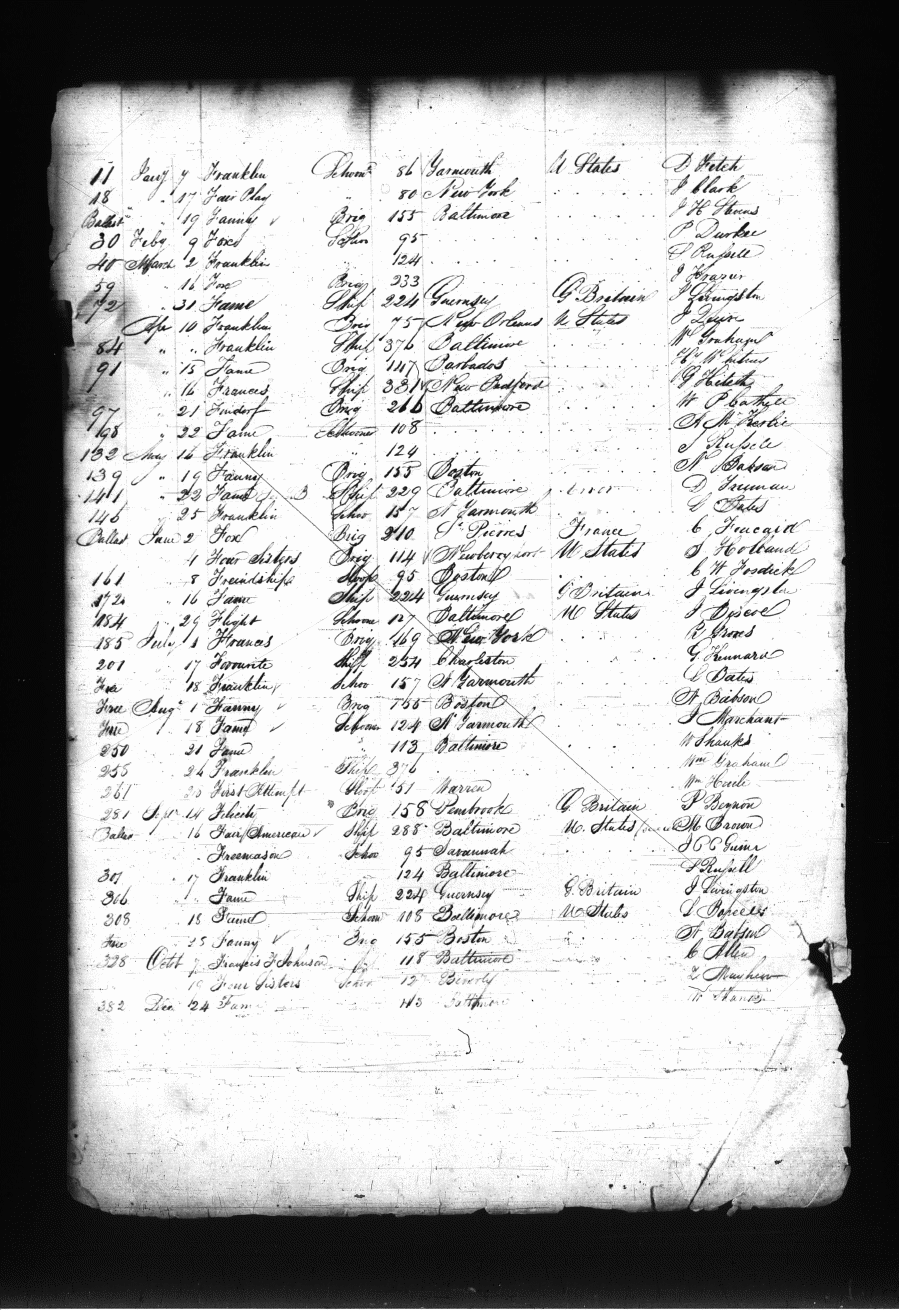 11 Jany 7 Franklin Schoonr 86 Yarmouth U States D Fitch
18 " 17 Fair Play " 80 New York . . . . J Clark
Ballast " 19 Fanny Brig 155 Baltimore . . . . J H Stevens
30 Feby 9 Foxes Schoo 95 . . . . P Durkee
40 March 2 Franklin 124 . . . . S Russell
59 " 16 Fox Brig 233 . . . . J Frazier
72 " 31 Fame Ship 224 Guernsey G Britain J Livingston
Apr 10 Franklin Brig 757 New Orleans U States J
84 " " Franklin Ship 376 Baltimore . . . . Wm Graham
91 " 15 Fame Brig 147 Barbados . . . .
" 16 Frances Ship 331 New Bedford . . . . G
97 " 21 Brig 266 Baltimore . . . . W P
198 " 22 Fame Schooner 108 . . . . A
132 May 16 Franklin " 124 . . . . S Russell
139 " 19 Fanny Brig 155 Boston . . . . N Babson
141 " 22 Fame Ship 229 Baltimore D Freeman
146 " 25 Franklin Schoo 157 N Yarmouth . . . . G Bates
Ballast June 2 Fox Brig 210 St Pierres France C Foucard
4 Four Sisters Brig 114 Newberry port U States S Holland
161 " 8 Freindship Sloop 95 Boston . . . . C W Fosdick
172 " 16 Fame Ship 224 Guernsey G Britain J Livingston
184 " 29 Flight Schoone 127 Baltimore U States J Biscoe
185 July 1 Frances Brig 169 New York . . . . B Groves
201 " 17 Favourite Ship 254 Charleston . . . . G Kennard
Free 18 Franklin Schoo 157 N Yarmouth . . . . C Bates
Free Augt 1 Fanny Brig 155 Boston . . . . N Babson
Free 18 Fame Schoone 124 N Yarmouth . . . . J Marchant
250 21 Fame " 113 Baltimore . . . . W Shanks
255 26 Franklin Ship 376 . . . . Wm Graham
261 First Attempt Sloop 51 Warren . . . . Wm
281 Sepr 14 Felicity Brig 158 Pembrook G Britain P Beynon
" 16 Fair American Ship 288 Baltimore U States M Brown
Freemason Schoo 95 Savannah . . . .
301 " 17 Franklin " 124 Baltimore . . . . S Russell
306 " Fame Ship 224 Guernsey G Britain J Livingston
308 18 Schoon 108 Baltimore U States L
Free 28 Fanny Brig 155 Boston N Babson
328 Octob 7 Francis F Johnson 118 Baltimore C Allen
19 Four Sisters Schoo 127 Beverly Z Mayhew
382 Dec 24 Fame 113 Baltimore W Shanks